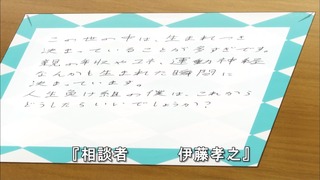 この世の中は、生まれつき
決まっていることが多すぎです。
親の年収やコネ、運動神経
なんかも生まれた瞬間に
決まっています。
人生負け組の僕は、これから
どうしたらいいでしょうか？
『相談者　伊藤孝之』